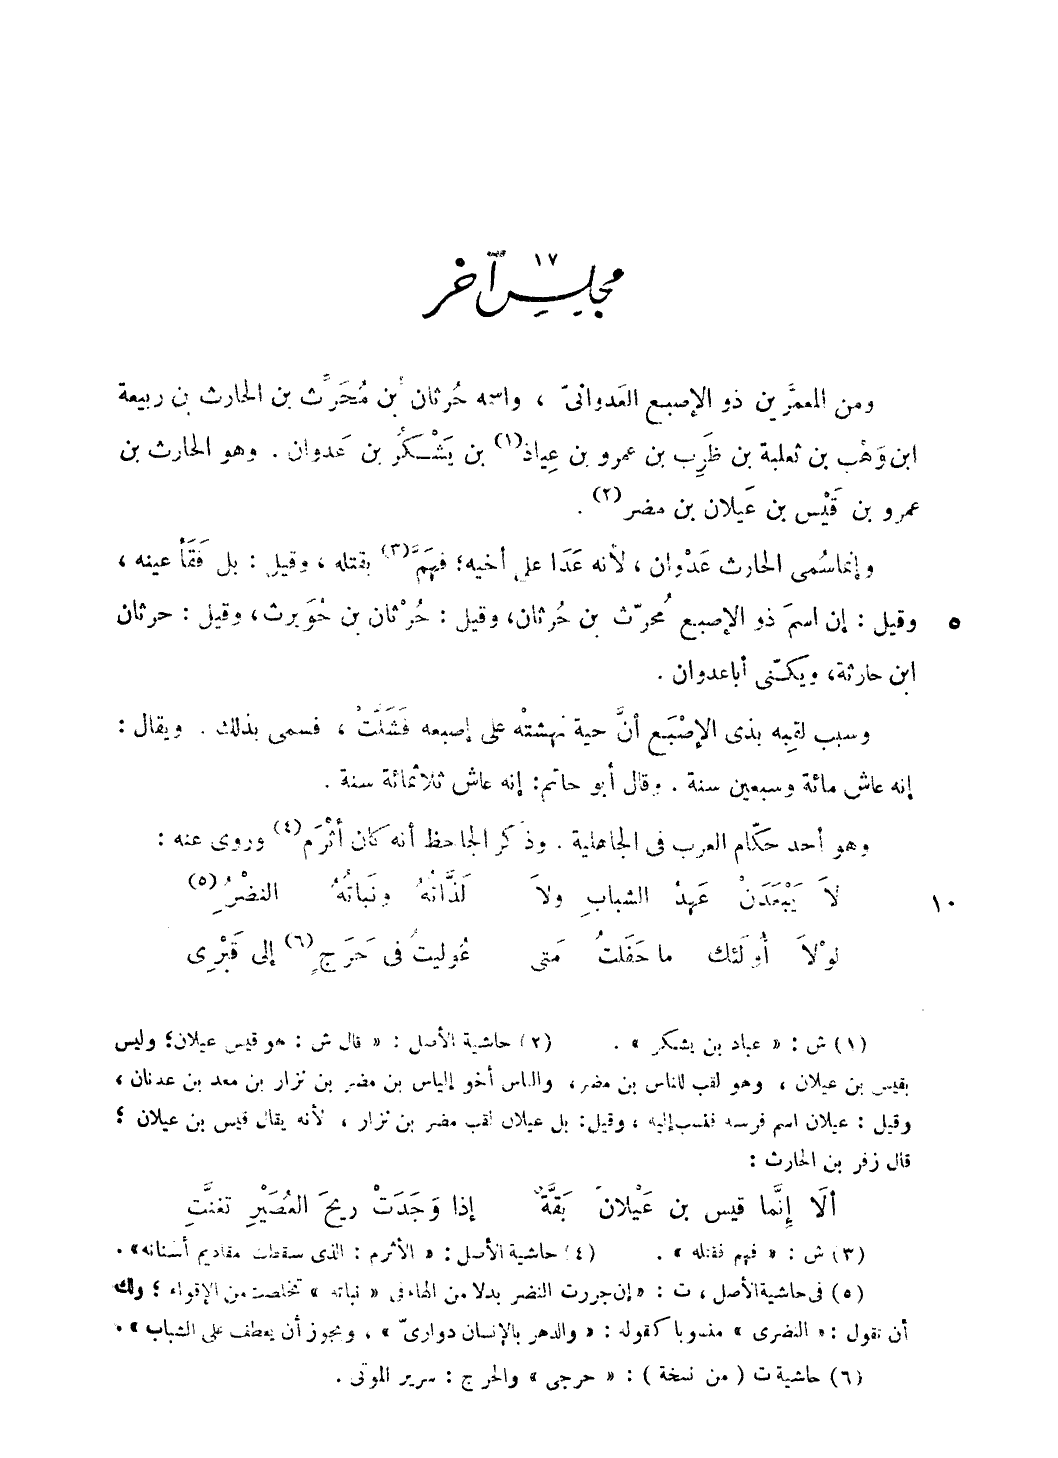 ١٧
مجلس آخر
ومن المعمَّرين ذو الإصبع العَدوانىّ ، واسمه حُرثان بْن مُحَرِّث بن الحارث بن ربيعة
ابن وَهْب بن ثعلبة بن ظَرِب بن عمرو بن عِياذ(١) بن يَشْكُر بن عَدوان . وهو الحارث بن
عمرو بن قَيْس بن عَيلان بن مضر(٢) .
وإنما سُمى الحارث عَدْوان ، لأنه عَدَا على أخيه؛ فهَمَّ(٣) بقتله ، وقيل : بل فَقَأ عينه ،
٥ وقيل : إن اسمَ ذو الإصبع مُحرّث بن حُرثان، وقيل : حُرْثان بن حُوَيرث، وقيل : حرثان
ابن حارثة، ويكنّى أباعدوان .
وسبب لقبه بذى الإصْبَع أنَّ حية نهشتْه على إصبعه فَشَلَّتْ ، فسمى بذلك . ويقال :
إنه عاش مائة وسبعين سنة . وقال أبو حاتم: إنه عاش ثلاثمائة سنة .
وهو أحد حكّام العرب فى الجاهلية . وذَكَر الجاحظ أنه كان أثْرَم(٤) وروى عنه :
١٠ لاَ يَبْعَدَنْ عَهدُ الشبابِ ولاَ لَذَّاتُهُ ونَباتُهُ النضْرُِ(٥)
لوْلاَ أُولَئك ما حَفَلتُ مَتى عُوليتُ فى حَرَجٍ(٦) إلى قَبْرِى
(١) ش : « عباد بن يشكر » . (٢) حاشية الأصل : « قال ش : هو قيس عيلان؛ وليس
بقيس بن عيلان ، وهو لقب للناس بن مضر، والناس أخو إلياس بن مضر بن نزار بن معد بن عدنان ،
وقيل : عيلان اسم فرسه فنسب إليه ، وقيل: بل عيلان لقب مضر بن نزار ، لأنه يقال قيس بن عيلان ؛
قال زفر بن الحارث :
ألَا إِنَّما قيس بن عَيْلانَ بَقَّةٌ إذا وَجَدَتْ ريحَ العُصَيْرِ تغنَّتِ
(٣) ش : « فهم فقتله » . (٤) حاشية الأصل : « الأثرم : الذى سقطت مقاديم أسنانه» .
(٥) فى حاشية الأصل ، ت : «إن جررت النضر بدلا من الهاء فى « نباته » تخلصت من الإقواء ؛ ولك
أن تقول : « النضرى » منسوبا كقوله : « والدهر بالإنسان دوارىّ » ، ويجوز أن يعطف على الشباب » .
(٦) حاشية ت ( من نسخة ) : « حرجى » والحرج : سرير الموتى .